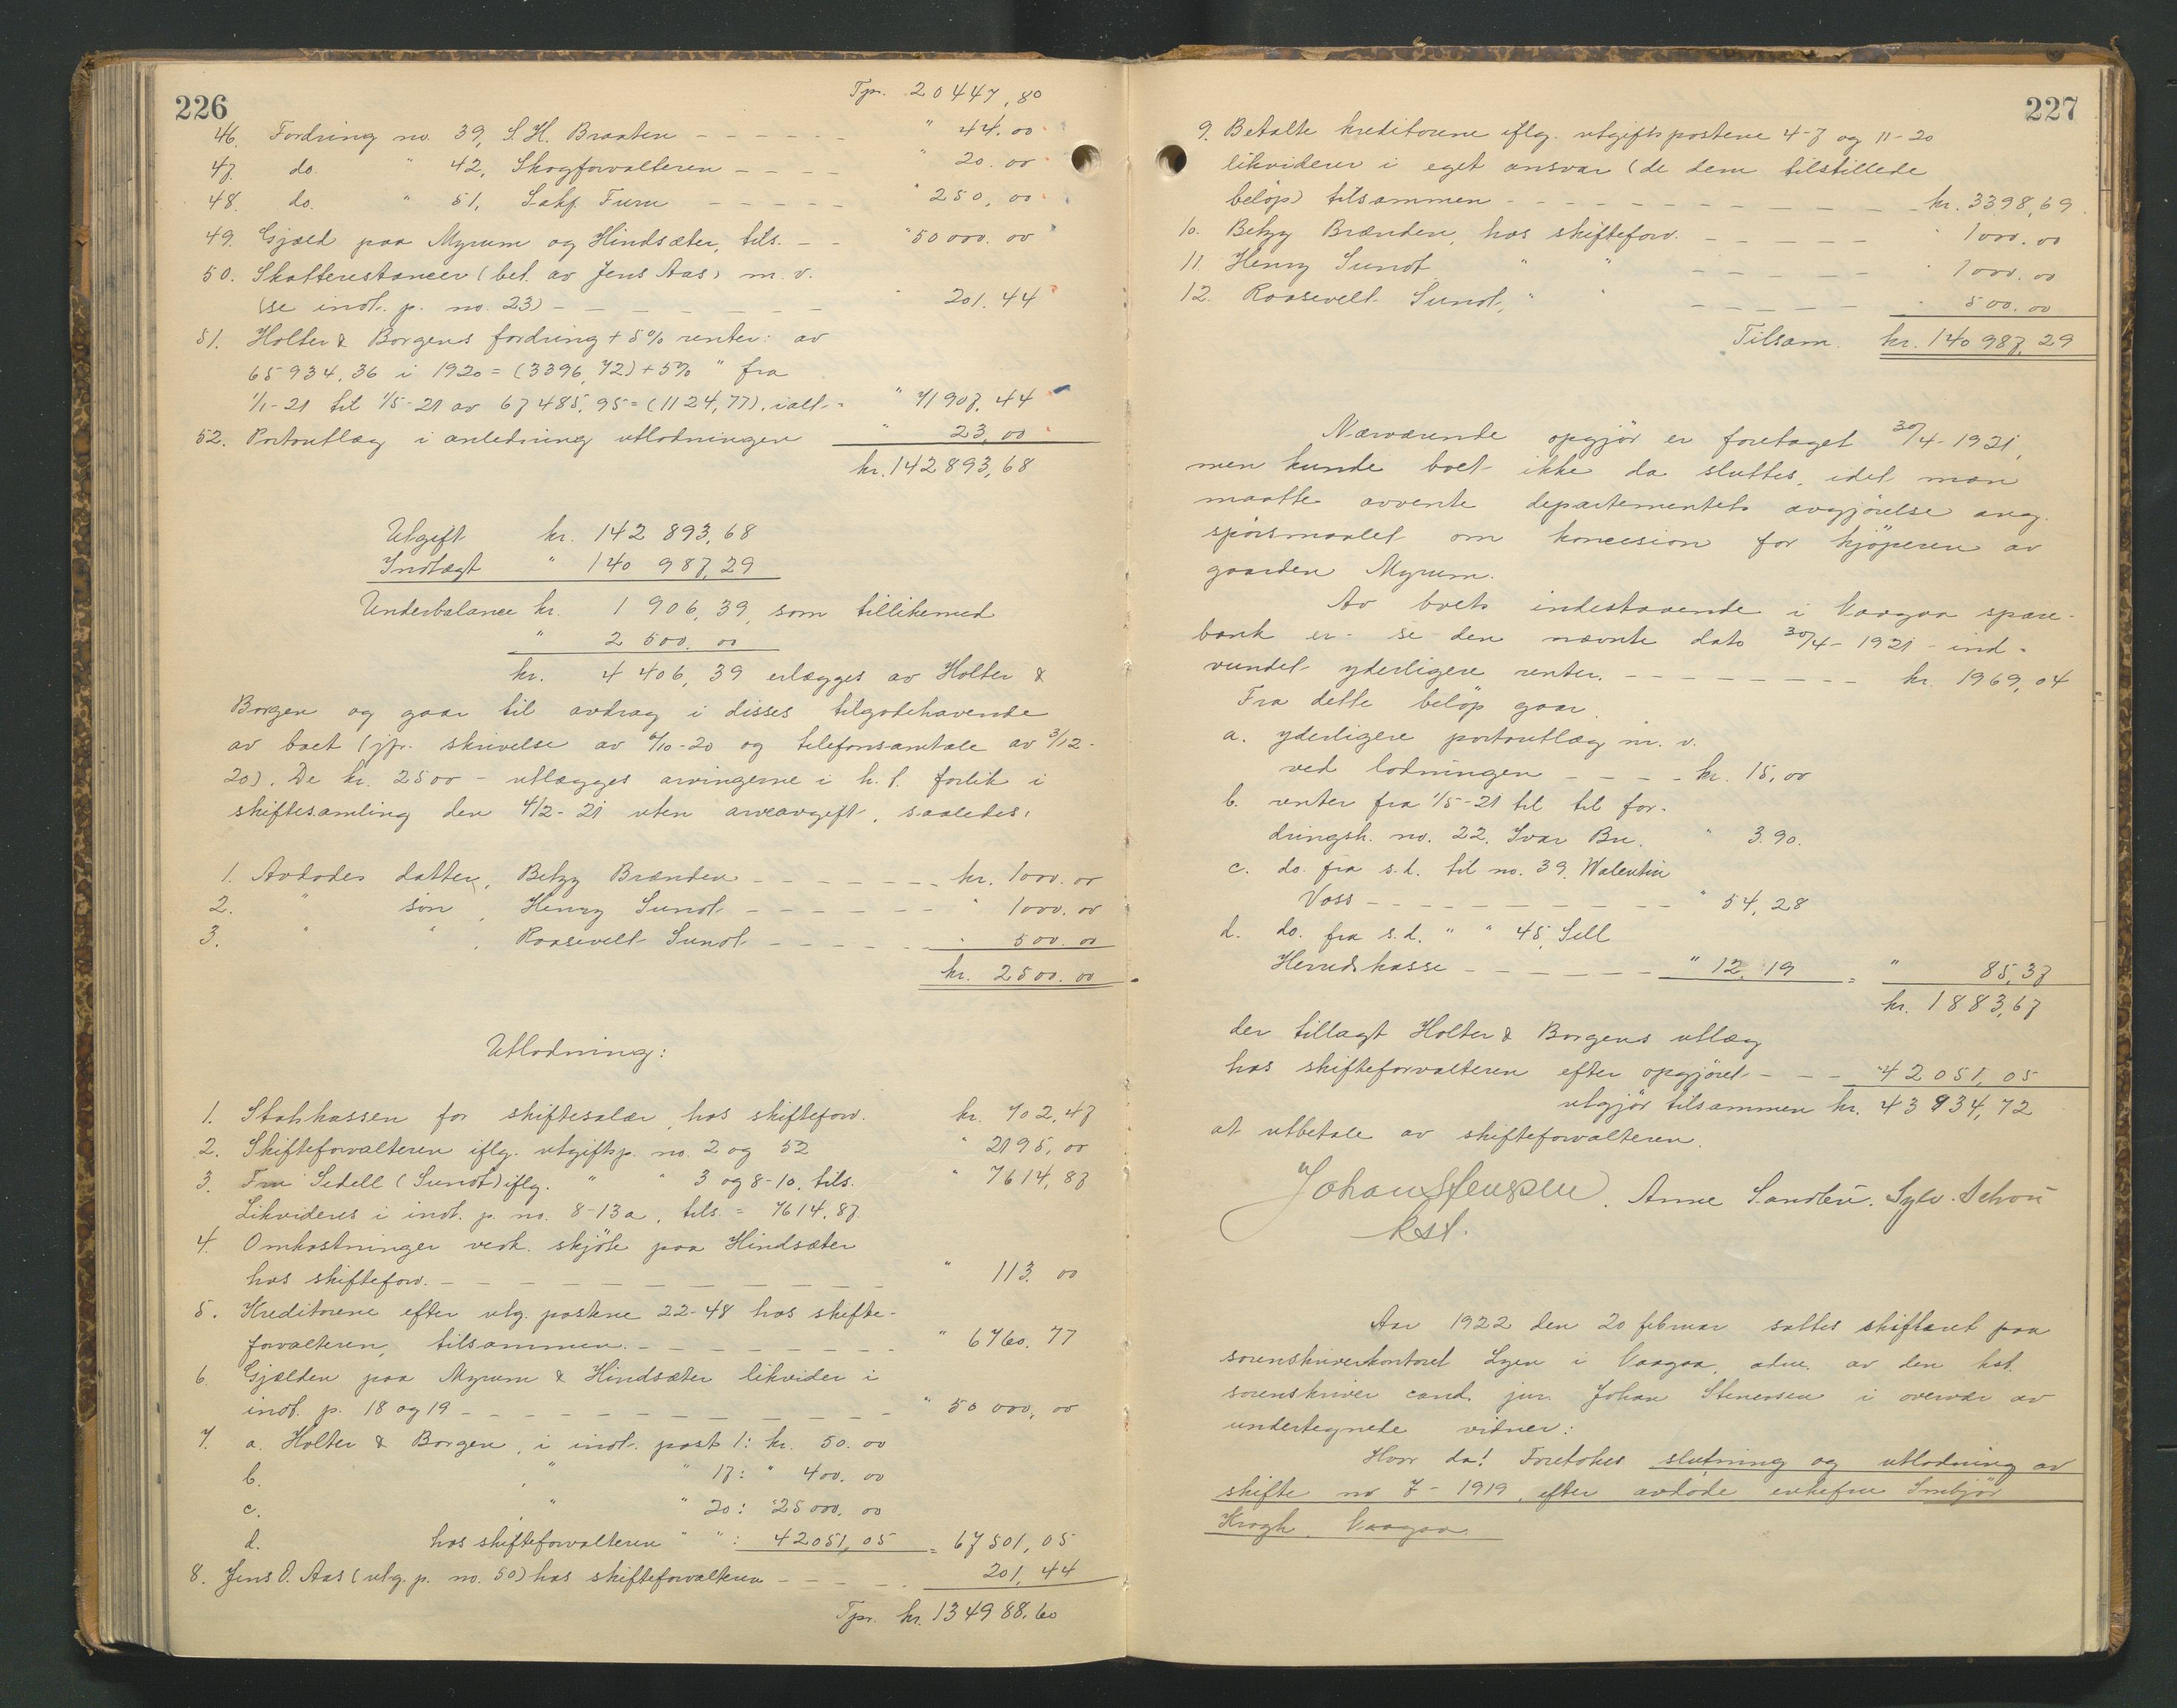 226
Tpr. 20447,80
46. Fordring no. 39, S. H. Braaten - - - - - - " 44.00
47. do. " 42, Skogforvalteren - - - - " 20.00
48. do. " 51, Sakf. Furu - - - - - " 250,00
49. Gjæld paa Myrum og Hindsæter, tils. - - " 50000.00
50. Skatterestancer (bet. av Jens Aas) m. v.
(se indt. p. no. 23) - - - - - - - - " 201.44
51. Holter & Borgens fordring + 5% renter: av
65934,36 i 1920 = (3396,72) + 5% " fra
1/1-21 til 1/5-21 av 67485,95 = (1124,77), ialt = " 71907,44
52. Portoutlæg i anledning utlodningen " 23,00
kr. 142893,68
Utgift kr. 142 893,68
Indtægt " 140 987,29
Underbalance kr. 1 906,39, som tillikemed
" 2 500.00
kr. 4 406,39 erlægges av Holter &
Borgen og gaar til avdrag i disses tilgodehavende
av boet (jfr. skrivelse av 6/10-20 og telefonsamtale av 3/12-
20). De kr. 2500 - utlægges arvingerne i h. t. forlik i
skiftesamling den 4/2-21 uten arveavgift, saaledes:
1. Avdødes datter, Betzy Brænden - - - - - - - kr. 1000.00
2. " søn, Henry Sundt - - - - - - - " 1000.00
3. " " , Roosevelt Sundt - - - - - - " 500.00
kr. 2500.00
Utlodning:
1. Statskassen for skiftesalær, hos skifteforv. kr. 702,47
2. Skifteforvalteren iflg. utgiftsp. no. 2 og 52 " 2195,00
3. Fru Sedell (Sundt) iflg. " " 3 og 8-10, tils. " 7614,87
Likvideres i indt. p. no. 8-13a, tils. = 7614,87
4. Omkostninger vedk. skjøte paa Hindsæter
hos skifteforv. - - - - - - - - - - - " 113.00
5. Kreditorene efter utg. postene 22-48 hos skifte-
forvalteren, tilsammen. - - - - - - - " 6760.77
6. Gjælden paa Myrum & Hindsæter likvider i
indt. p. 18 og 19 - - - - - - - - - - - " 50 000,00
7. a. Holter & Borgen, i indt. post 1: kr. 50.00
b. " " 17: " 400.00
c. " " 20: " 25000.00
d. hos skifteforvalteren " " : 42051,05 = 67501,05
8. Jens O. Aas (utg. p. no. 50) hos skifteforvalteren - - - - 201,44
Tpr. kr. 134988,60
227
9. Betalte kreditorene iflg. utgiftspostene 4-7 og 11-20
likviderer i eget ansvar (de dem tilstillede
beløp) tilsammen - - - - - - - - - - - kr. 3398,69
10. Betzy Brænden, hos skifteforv. - - - - - " 1000.00
11. Henry Sundt " " - - - - - " 1000.00
12. Roosevelt Sundt, " " - - - - - " 500.00
Tilsam. kr. 140 987,29
Nærværende opgjør er foretaget 30/4-1921,
men kunde boet ikke da sluttes, idet man
maatte avvente departementets avgjørelse ang.
spørsmaalet om koncesion for kjøperen av
gaarden Myrum.
Av boets indestaaende i Vaagaa spare-
bank er - se den nævnte dato 30/4-1921 - ind-
vundet yderligere renter. - - - - - - - - kr. 1969,04
Fra dette beløp gaar
a. yderligere portoutlæg m. v.
ved lodningen - - - - kr. 15,00
b. renter fra 1/5-21 til til for-
dringsh. no. 22. Ivar Bu. " 3.90.
c. do. fra s.d. til no. 39. Walentin
Voss - - - - - - - - - - " 54,28
d. do. fra s.d. " " 45, Sell
Herredskasse - - - - - - " 12.19 = " 85,37
kr. 1883,67
der tillagt Holter & Borgens utlæg
hos skifteforvalteren efter opgjøret - - - " 42051,05
utgjør tilsammen kr. 43934,72
at utbetale av skifteforvalteren.
Johan Stenersen. Anne Sandlein. Sylv. Schou
kst.
Aar 1922 den 20 februar sattes skifteret paa
sorenskriverkontoret Lyen i Vaagaa, adm. av den kst.
sorenskriver cand. jur. Johan Stenersen i overvær av
undertegnede vidner:
Hvor da! Foretokes slutning og utlodning av
skifte no 7-1919, efter avdøde enkefru Imbjør
Krogh, Vaagaa.